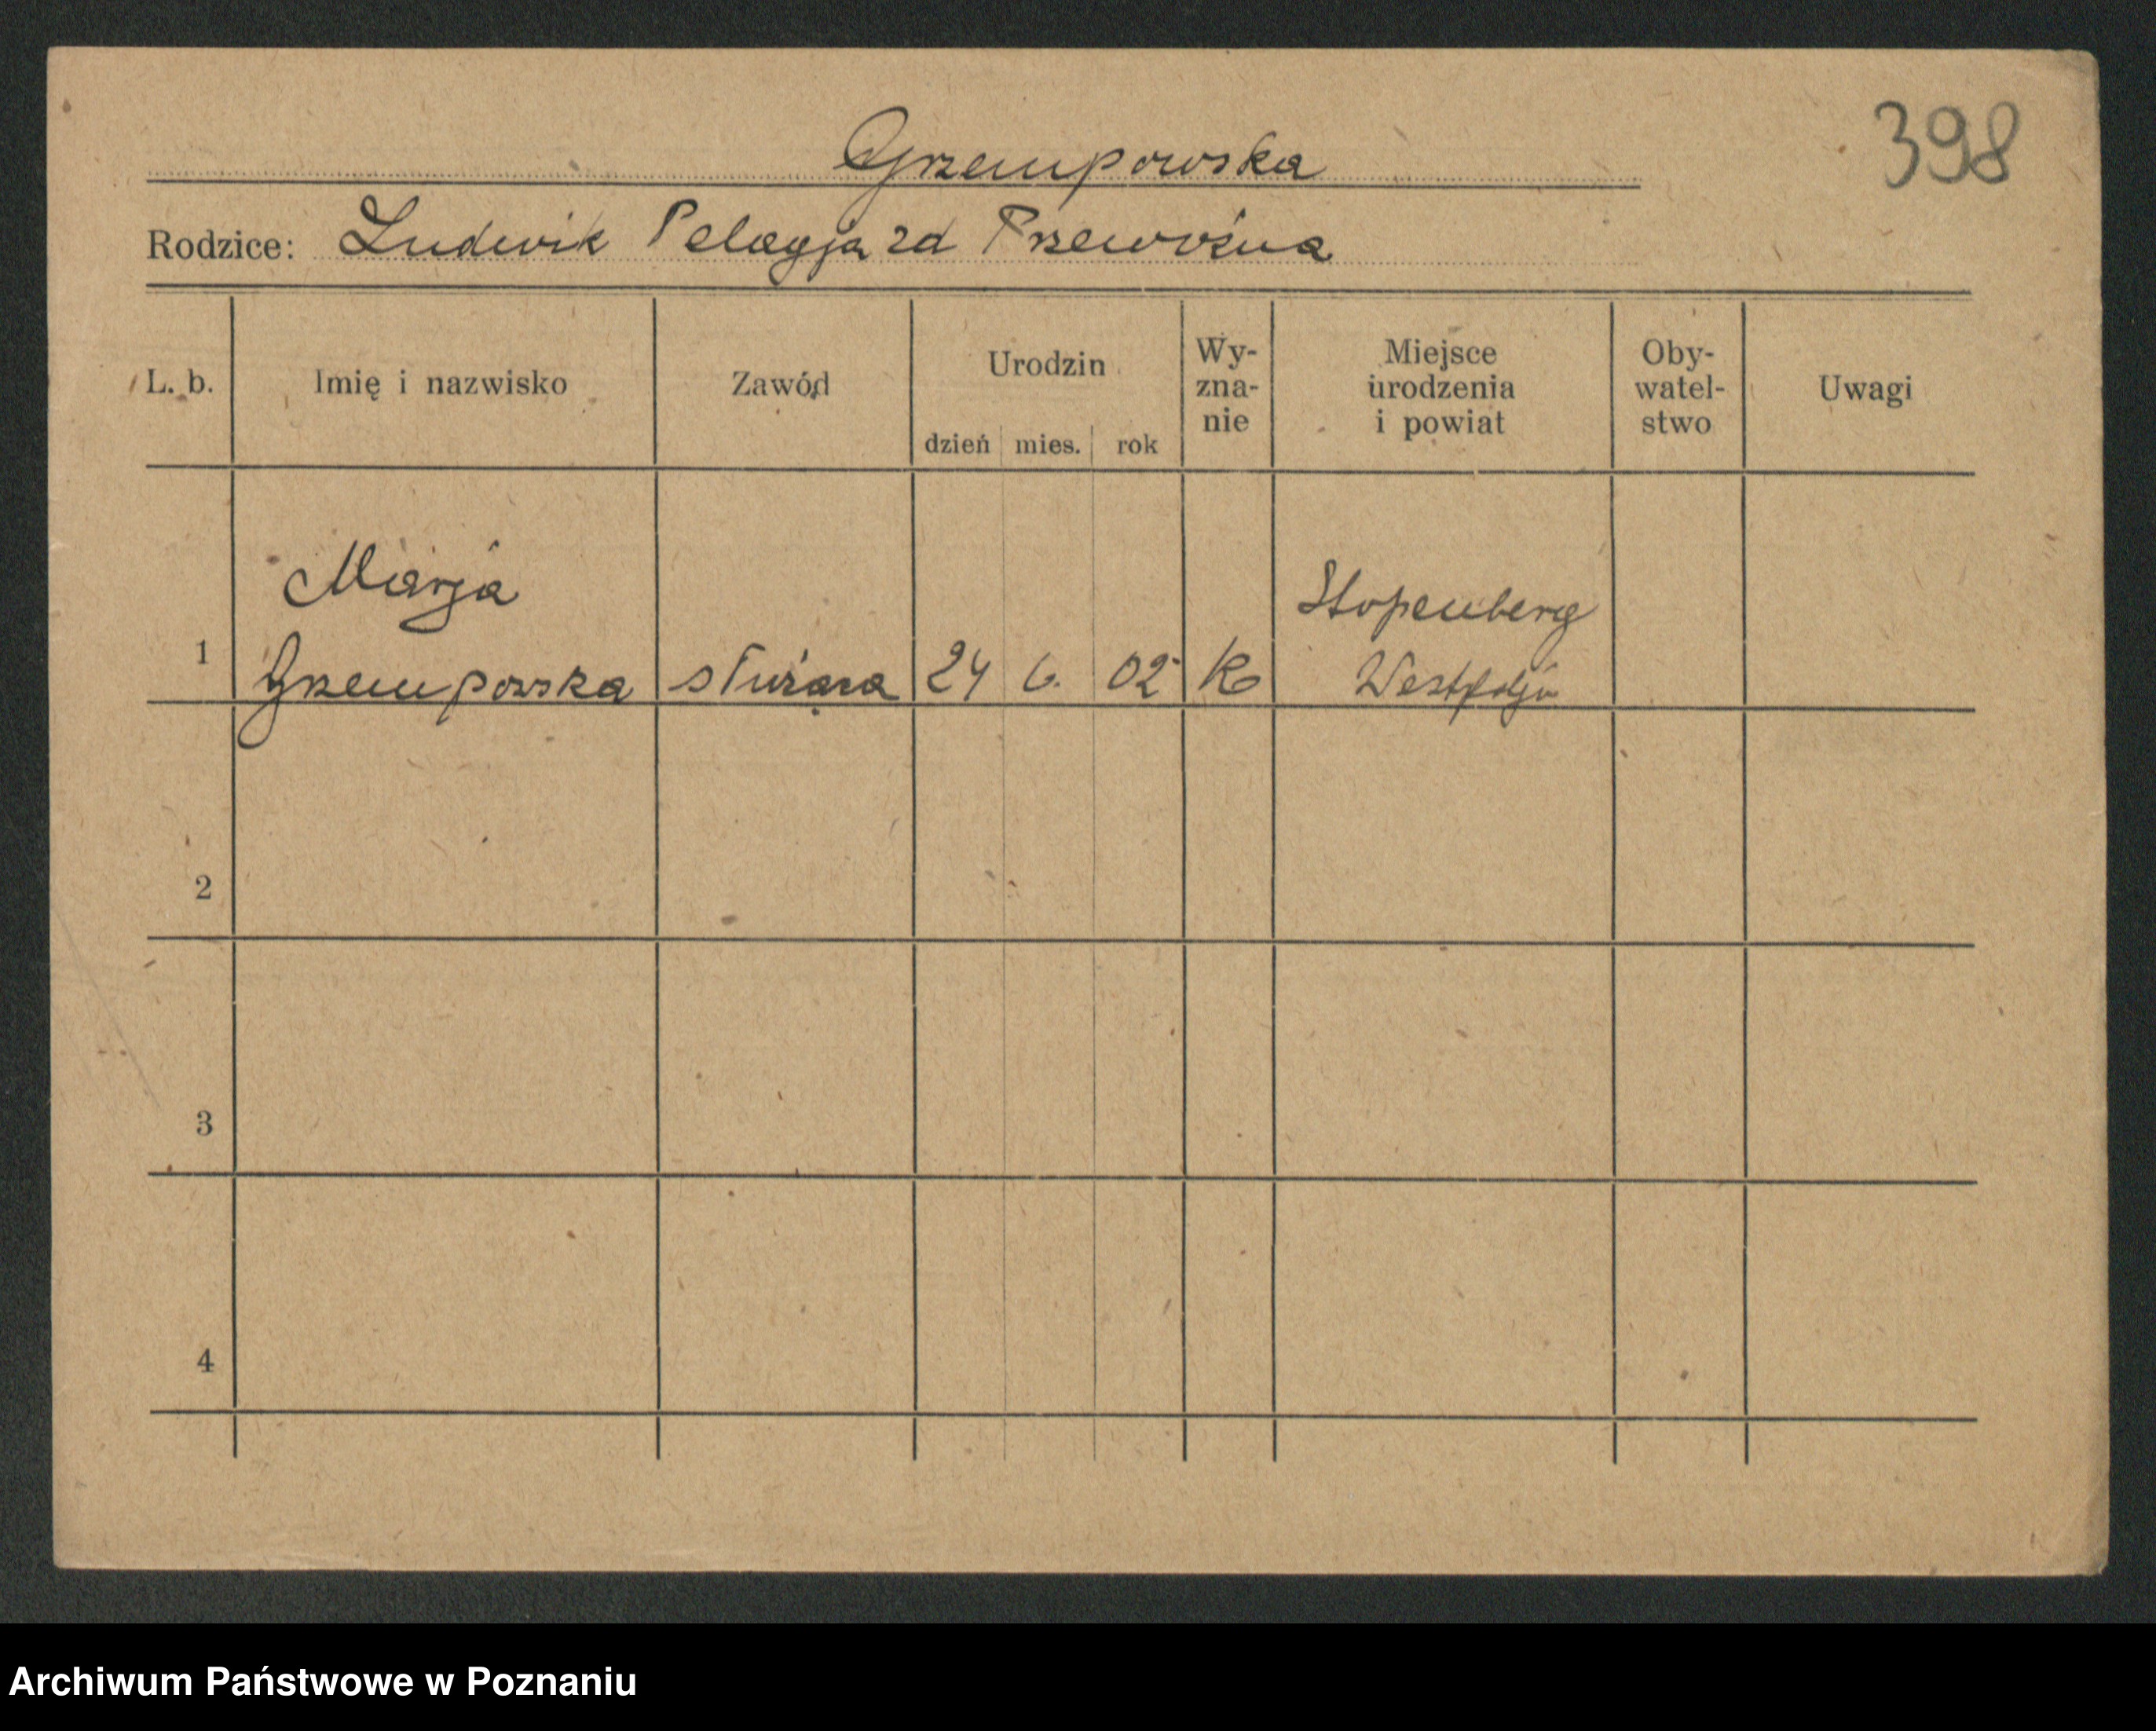 398
Grzempowska
Rodzice: Ludwik Pelagja zd Przewoźna
L. b. Imię i nazwisko Zawód Urodzin dzień mies. rok Wy-zna-nie Miejsce urodzenia i powiat Oby-watel-stwo Uwagi
Marja Stopenberg
1 Grzempowska służąca 24 6. 02 K Westfalja
2
3
4
Archiwum Państwowe w Poznaniu